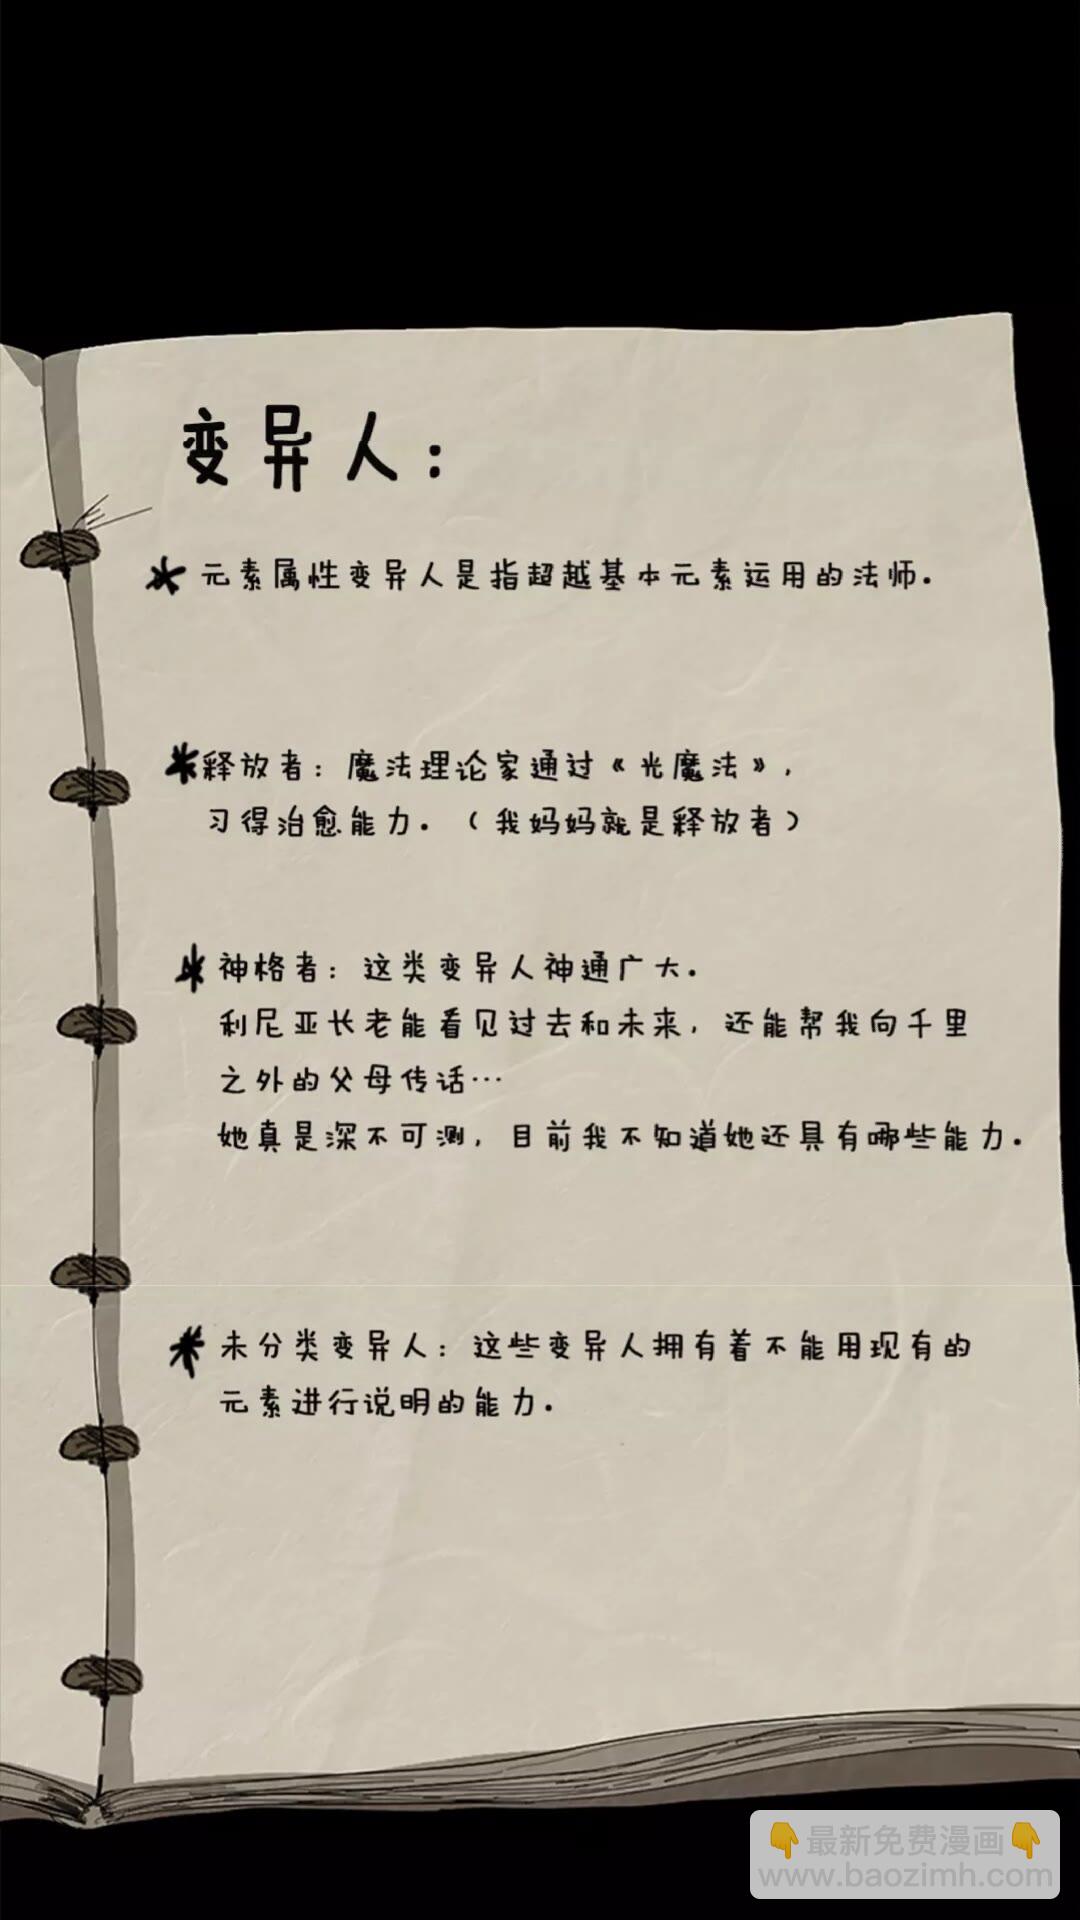 变异人:
* 元素属性变异人是指超越基本元素运用的法师.
* 释放者: 魔法理论家通过《光魔法》,
习得治愈能力. (我妈妈就是释放者)
* 神格者: 这类变异人神通广大.
利尼亚长老能看见过去和未来, 还能帮我向千里
之外的父母传话…
她真是深不可测, 目前我不知道她还具有哪些能力.
* 未分类变异人: 这些变异人拥有着不能用现有的
元素进行说明的能力.
👇最新免费漫画👇
www.baozimh.com